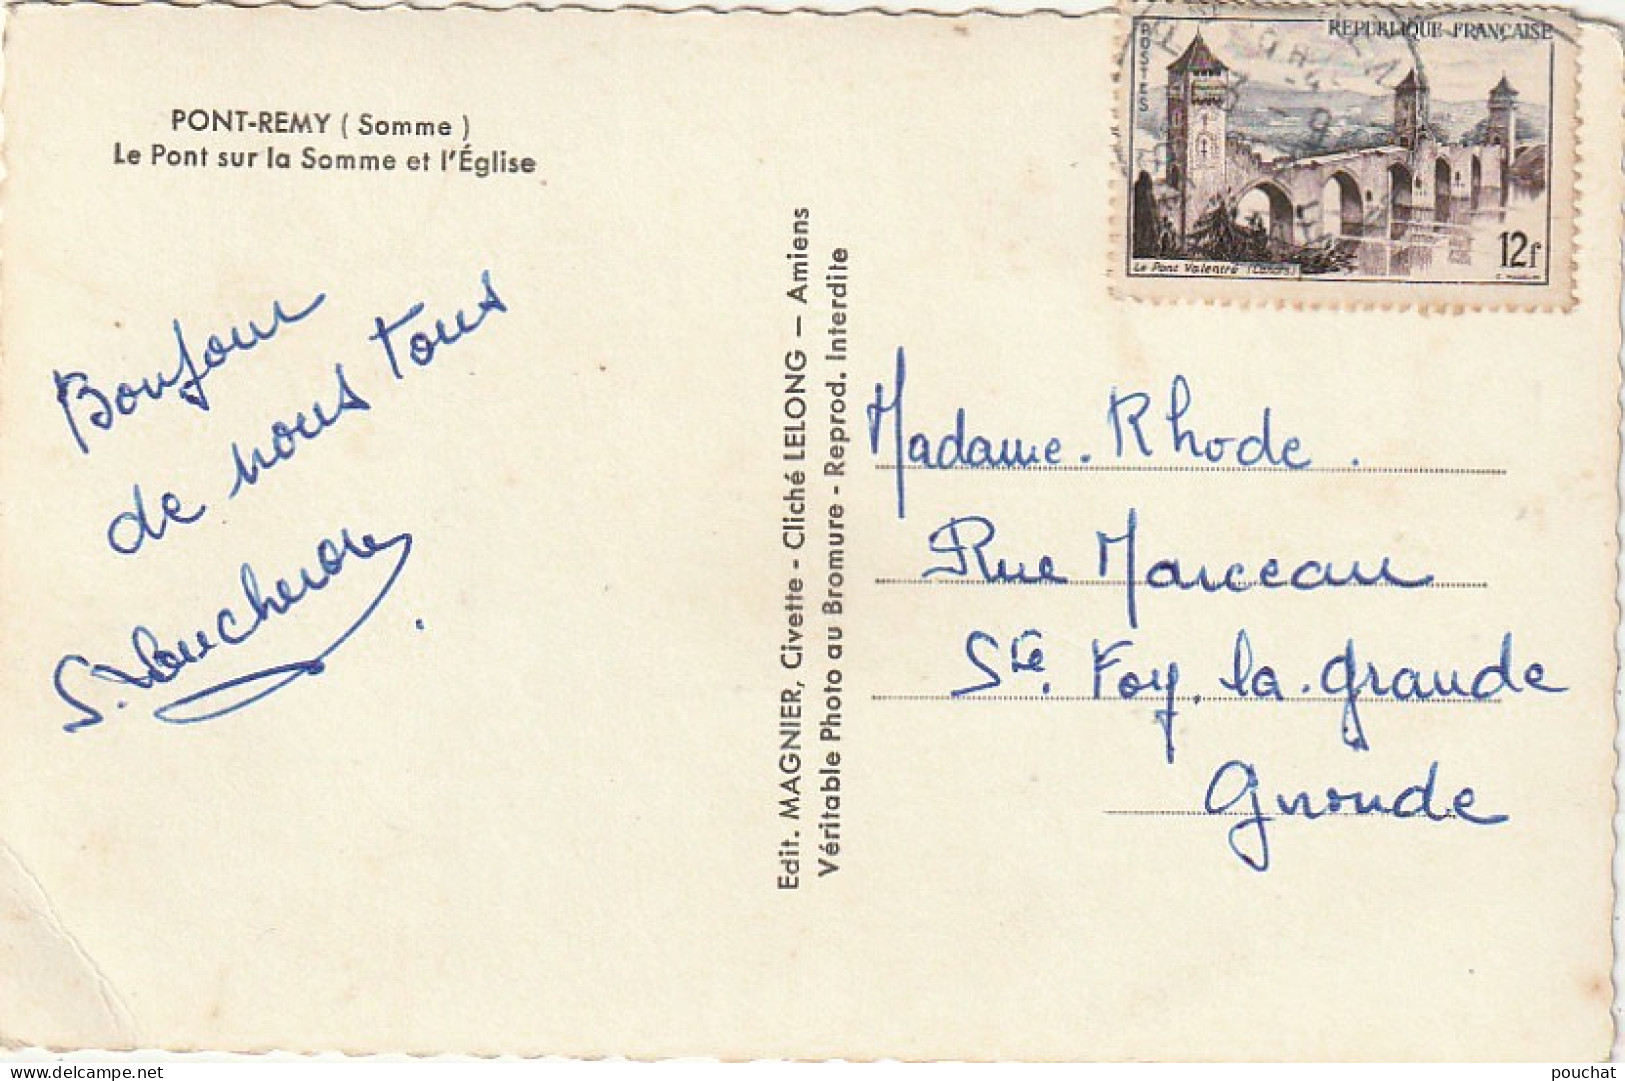 PONT-REMY ( Somme )
Le Pont sur la Somme et l'Église
Bonjour
de nous tous
Edit. MAGNIER, Civette - Cliché LELONG — Amiens
Véritable Photo au Bromure - Reprod. Interdite
REPUBLIQUE FRANÇAISE
POSTES
Le Pont Valentré (Cahors)
12f
Madame. Rhode.
Rue Marceau
Ste. Foy. la. grande
Gironde
delcampe.net
pouchat